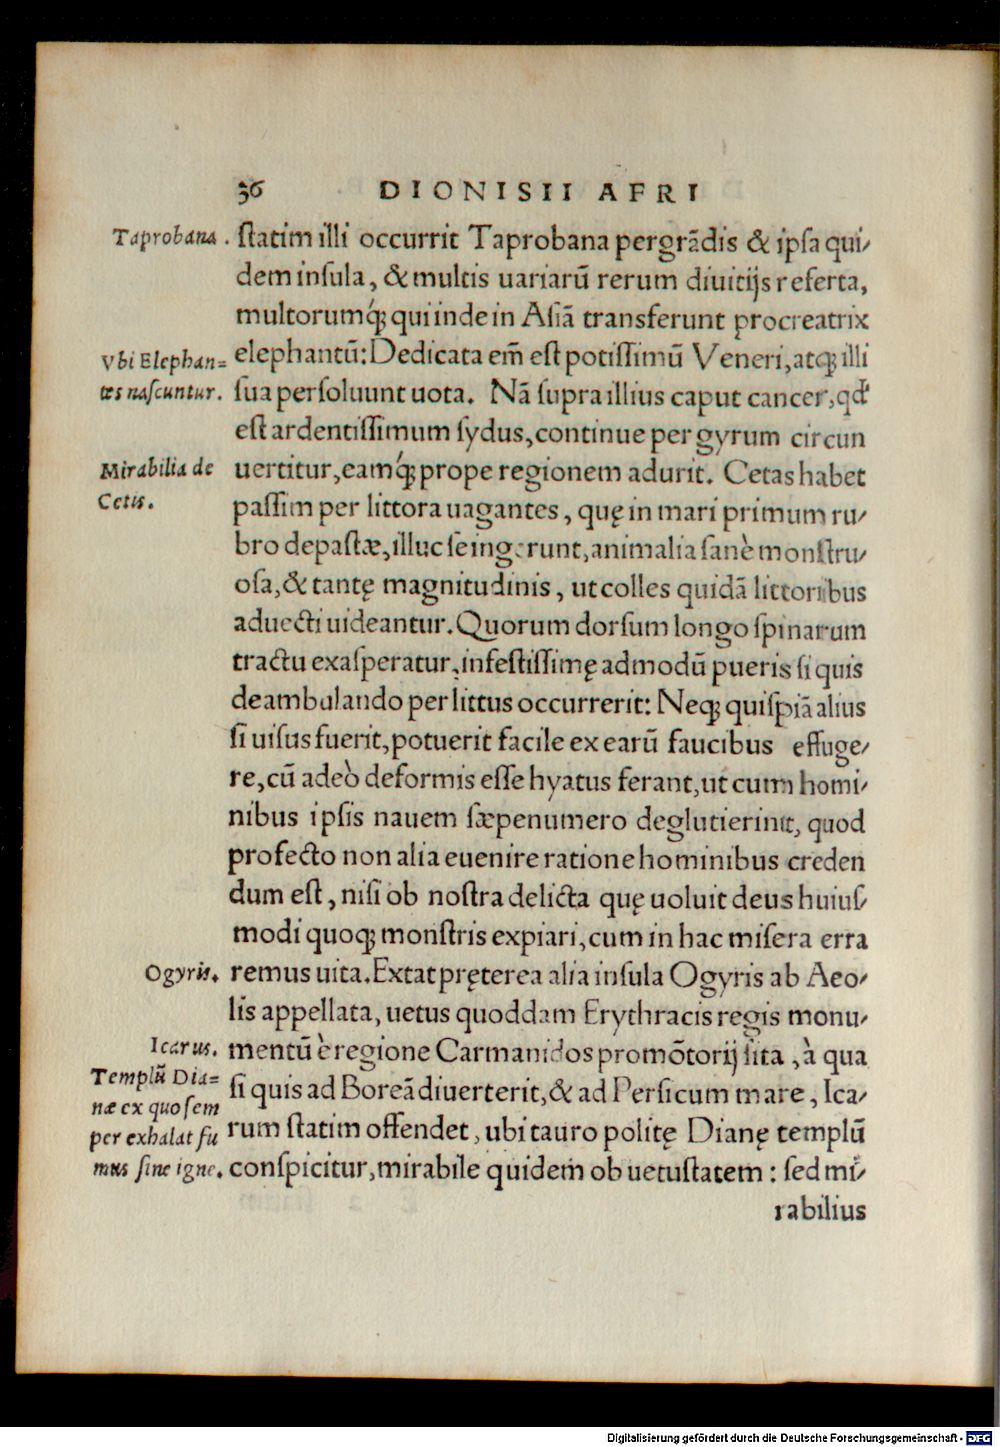 36 DIONISII AFRI
Taprobana. ſtatim illi occurrit Taprobana pergrãdis & ipſa qui⸗
dem inſula, & multis uariarũ rerum diuitijs referta,
multorumq́; qui inde in Aſiã transferunt procreatrix
Vbi Elephan= elephantũ: Dedicata em̃ eſt potiſſimũ Veneri, atq; illi
tes naſcuntur. ſua perſoluunt uota. Nã ſupra illius caput cancer, qđ
eſt ardentiſſimum ſydus, continue per gyrum circun
Mirabilia de uertitur, eamq́; prope regionem adurit. Cetas habet
Cetis. paſſim per littora uagantes, quę in mari primum ru⸗
bro depaſtæ, illuc ſe ingerunt, animalia ſanè monſtru⸗
oſa, & tantę magnitudinis, ut colles quidã littoribus
aduecti uideantur. Quorum dorſum longo ſpinarum
tractu exaſperatur, infeſtiſſimę admodũ pueris ſi quis
deambulando per littus occurrerit: Neq; quiſpiã alius
ſi uiſus fuerit, potuerit facile ex earũ faucibus effuge⸗
re, cũ adeò deformis eſſe hyatus ferant, ut cum homi⸗
nibus ipſis nauem ſæpenumero deglutierint, quod
profecto non alia euenire ratione hominibus creden
dum eſt, niſi ob noſtra delicta quę uoluit deus huiuſ⸗
modi quoq; monſtris expiari, cum in hac miſera erra
Ogyris. remus uita. Extat pręterea alia inſula Ogyris ab Aeo⸗
lis appellata, uetus quoddam Erythracis regis monu⸗
Icarus. mentũ è regione Carmanidos promõtorij ſita, à qua
Templũ Dia= ſi quis ad Boreã diuerterit, & ad Perſicum mare, Ica⸗
næ ex quo ſem rum ſtatim offendet, ubi tauro politę Dianę templũ
per exhalat fu conſpicitur, mirabile quidem̃ ob uetuſtatem: ſed mi⸗
mus ſine igne.
rabilius
Digitalisierung gefördert durch die Deutsche Forschungsgemeinschaft - DFG